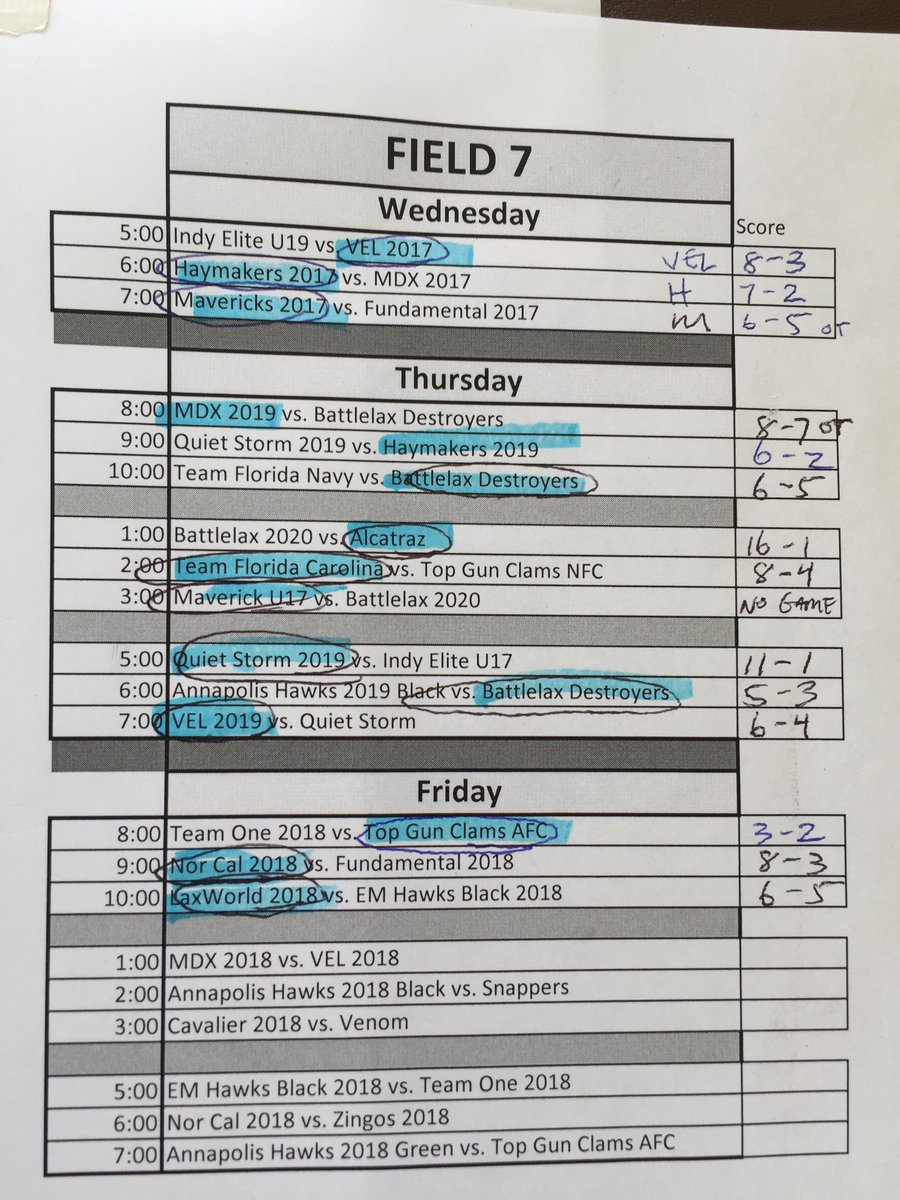 FIELD 7
Wednesday
Score
5:00 Indy Elite U19 vs. VEL 2017 VEL 8-3
6:00 Haymakers 2017 vs. MDX 2017 H 7-2
7:00 Mavericks 2017 vs. Fundamental 2017 M 6-5 OT
Thursday
8:00 MDX 2019 vs. Battlelax Destroyers 8-7 OT
9:00 Quiet Storm 2019 vs. Haymakers 2019 6-2
10:00 Team Florida Navy vs. Battlelax Destroyers 6-5
1:00 Battlelax 2020 vs. Alcatraz 16-1
2:00 Team Florida Carolina vs. Top Gun Clams NFC 8-4
3:00 Maverick U17 vs. Battlelax 2020 NO GAME
5:00 Quiet Storm 2019 vs. Indy Elite U17 11-1
6:00 Annapolis Hawks 2019 Black vs. Battlelax Destroyers 5-3
7:00 VEL 2019 vs. Quiet Storm 6-4
Friday
8:00 Team One 2018 vs. Top Gun Clams AFC 3-2
9:00 Nor Cal 2018 vs. Fundamental 2018 8-3
10:00 LaxWorld 2018 vs. EM Hawks Black 2018 6-5
1:00 MDX 2018 vs. VEL 2018
2:00 Annapolis Hawks 2018 Black vs. Snappers
3:00 Cavalier 2018 vs. Venom
5:00 EM Hawks Black 2018 vs. Team One 2018
6:00 Nor Cal 2018 vs. Zingos 2018
7:00 Annapolis Hawks 2018 Green vs. Top Gun Clams AFC